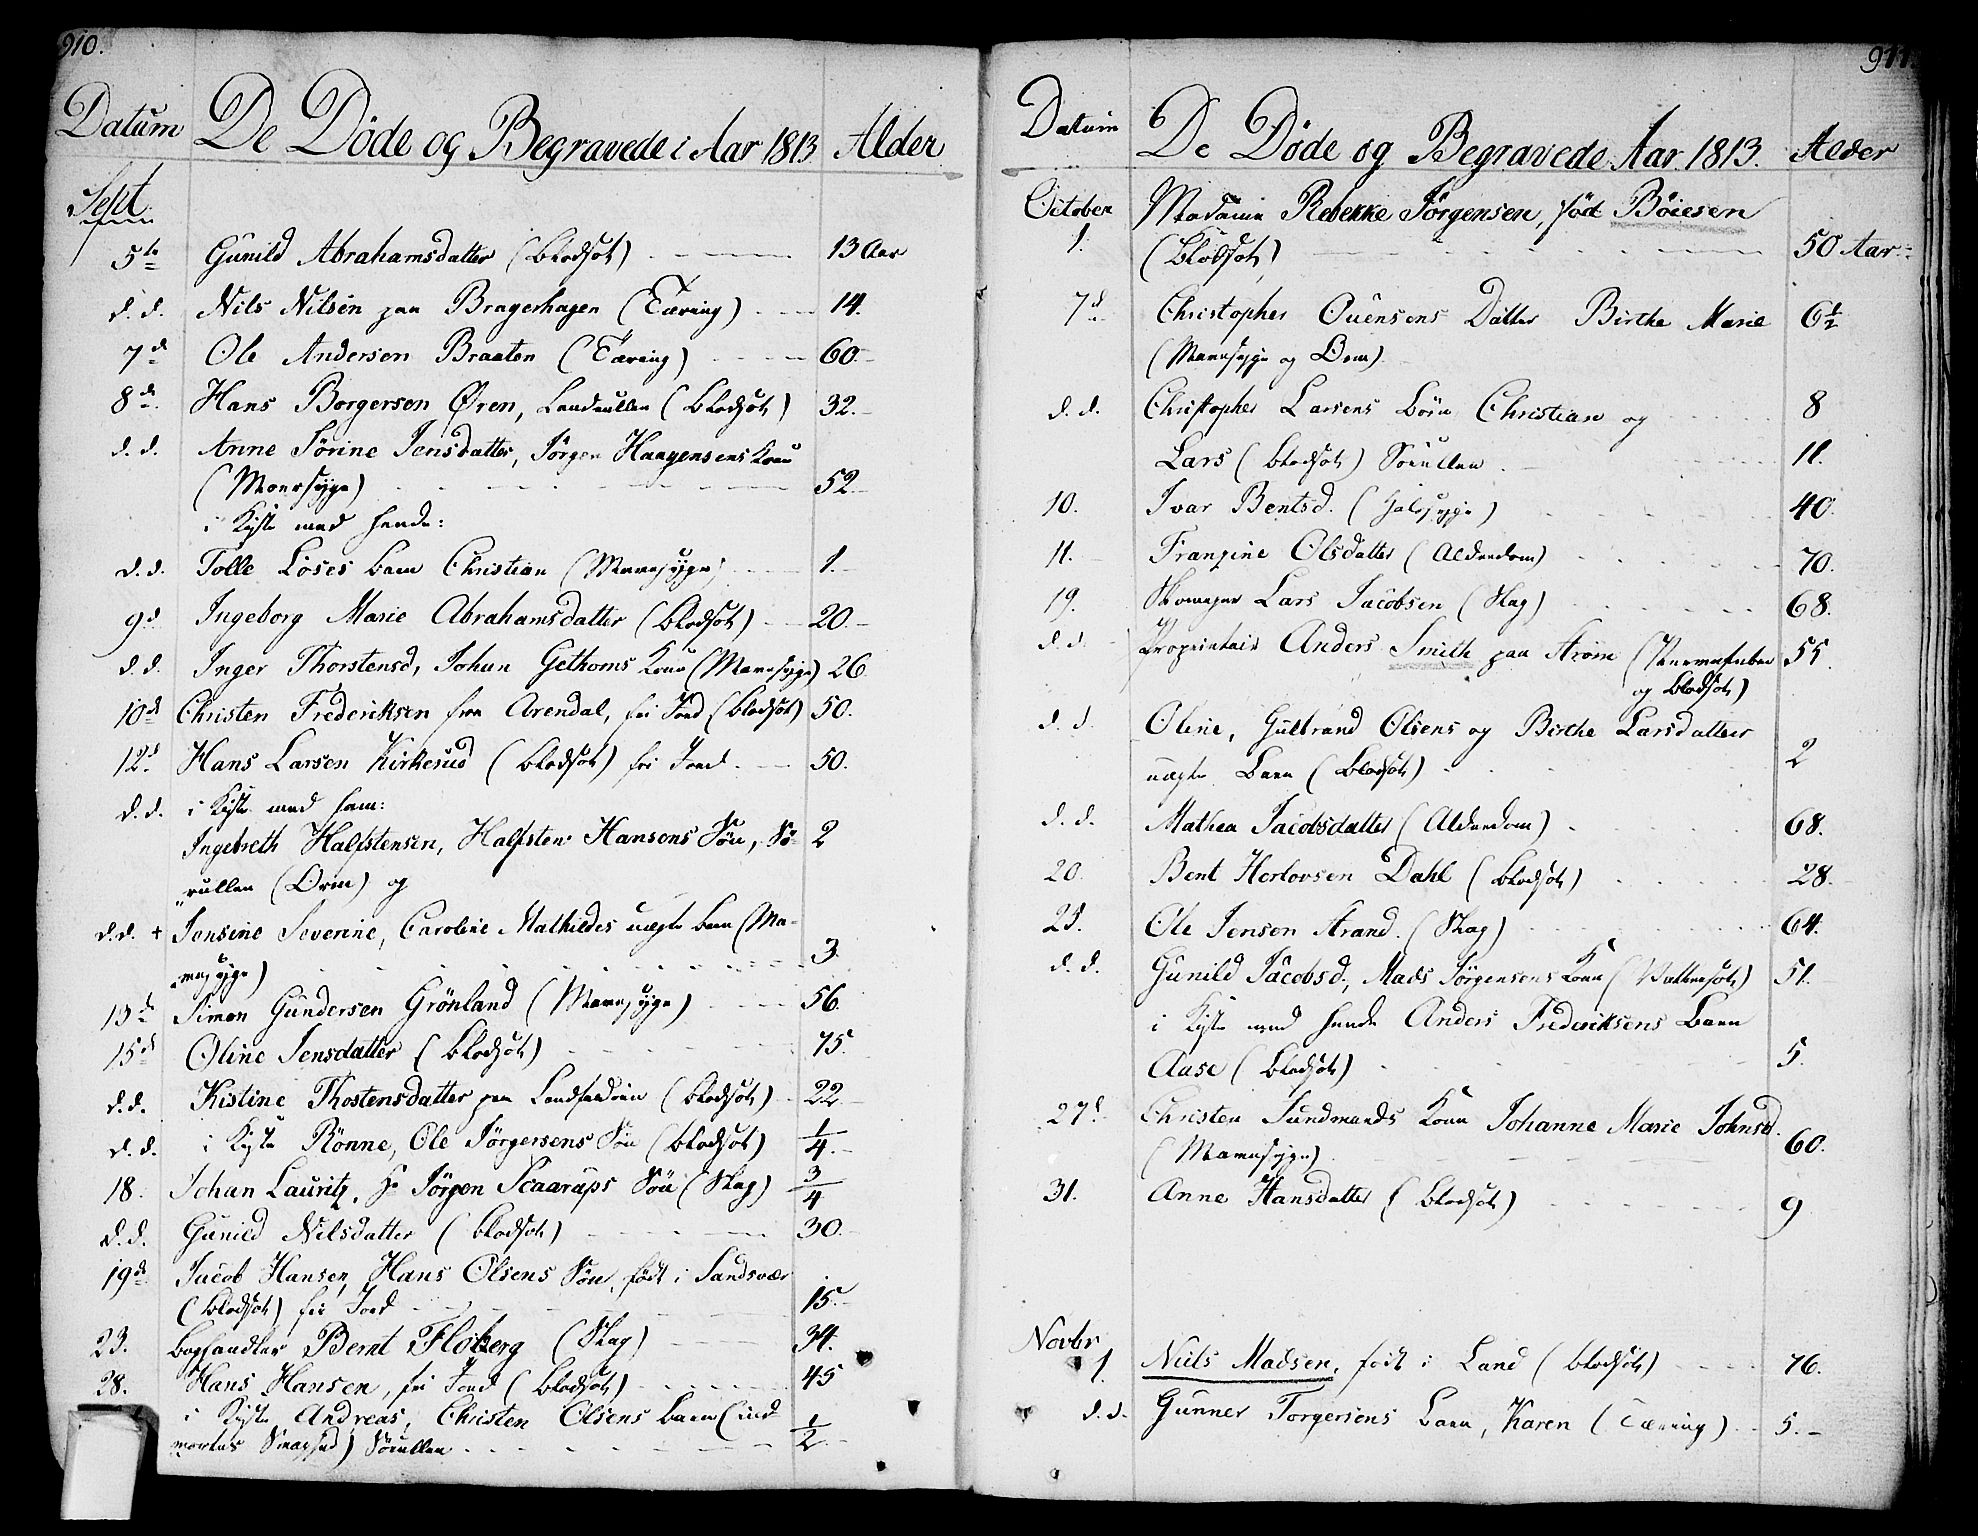 910.
Datum De Døde og Begravede i Aar 1813 Alder
Sept
5te Gunild Abrahamsdatter (Blodsot) 13 Aar
d. d. Nils Nilsen paa Bragerhagen (Tæring) 14.
7d Ole Andersen Braaten (Tæring) 60.
8d Hans Borgersen Øren, Landrullen (Blodsot) 32.
d. d. Anne Sørine Jensdatter, Jørgen Haagensens Kone
(Mavesyge) 52
i Kiste med hende:
d. d. Tolle Loses barn Christian (Mavesyge) 1.
9d Ingeborg Marie Abrahamsdatter (Blodsot) 20.
d. d. Inger Thorstensd, Johan Gethoms Kone (Mavesyge) 26
10d Christen Frederiksen fra Arendal, fri Jord (Blodsot) 50.
12d Hans Larsen Kirkerud (Blodsot) fri Jord 50.
d. d. i Kiste med ham:
Ingebreth Halfstensen, Halfsten Hansens Søn, Sø- 2
rullen (Orm) og
d. d. + Jensine Severine, Caroline Mathildes uægte barn (Ma-
vesyge) 3.
13d Simon Gundersen Grönland (Mavesyge) 56.
15d Oline Jensdatter (Blodsot) 75.
d. d. Kistine Thostensdatter paa Landfalløen (Blodsot) 22
d. d. i Kiste Rönne, Ole Jörgensens Søn (Blodsot) 1/4.
18. Johan Lauritz, Hr Jörgen Scaarups Søn (Slag) 3/4
d. d. Gunild Nilsdatter (Blodsot) 30.
19d Jacob Hansen, Hans Olsens Søn, født i Sandsvær
(Blodsot) fri Jord 15.
23. Boghandler Bernt Floberg (Slag) 34.
28. Hans Hansen, fri Jord (Blodsot) 45
i Kiste Andreas, Christen Olsens barn (ind
vortes Svaghed) Sørullen 1/2
911.
Datum De Døde og Begravede Aar 1813. Alder
October Madame Rebekke Jörgensen, född Böiesen
1. (Blodsot) 50 Aar
7d Christopher Ouensens Datter Birthe Marie 6½
(Mavesyge og Orm)
d. d. Christopher Larsens börn Christian og 8
Lars (Blodsot) Sörullen 11.
10. Ivar Bentsd. (Halssyge) 40.
11. Franzine Olsdatter (Alderdom) 70.
19. Skomager Lars Jacobsen (Slag) 68.
d. d. Proprietair Anders Smith paa Arom (Nervefeber 55.
og Blodsot)
d. d. Oline, Gulbrand Olsens og Birthe Larsdatters
uægte Barn (Blodsot) 2
d. d. Mathea Jacobsdatter (Alderdom) 68.
20. Bent Herlovsen Dahl (Blodsot) 28.
25. Ole Jensen Arand. (Slag) 64.
d. d. Gunild Jacobsd., Mads Jörgensens Kone (Vattersot) 51.
i Kiste med hende Anders Frederiksens Barn
Aase (Blodsot) 5.
27d Christen Sundmands Kone Johanne Marie Johnsd.
(Mavesyge) 60.
31. Anne Hansdatter (Blodsot) 9
Novbr
1. Niels Madsen, född i Land (Blodsot) 76.
d. d. Gunner Torgersens Barn, Karen (Tæring) 5.